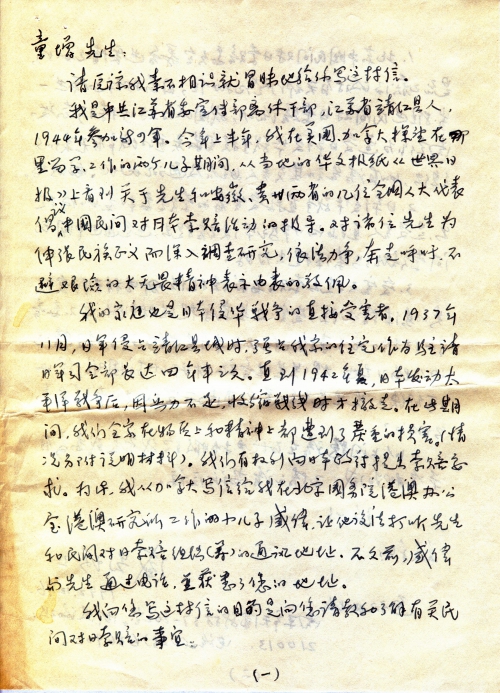 童增先生：
请原谅我素不相识就冒昧地给你写这封信。
我是中共江苏省委宣传部离休干部，江苏省靖江县人，
1944年参加新四军。今年上半年，我在美国、加拿大探望在那
里留学、工作的两个儿子期间，从当地的华文报纸《世界日
报》上看到关于先生和安徽、贵州两省的几位全国人大代表
倡议中国民间对日本索赔活动的报导。对诸位先生为
伸张民族正义而深入调查研究，依法力争，奔走呼吁，不
避艰险的大无畏精神表示由衷的敬佩。
我的家庭也是日本侵华战争的直接受害者。1937年
11月，日军侵占靖江县城时，强占我家的住宅作为驻靖
日军司令部长达四年半之久。直到1942年夏，日本发动太
平洋战争后，因兵力不足，收缩战线时才撤走。在此期
间，我们全家在物质上和精神上都遭到了严重的损害。（情
况另附说明材料）。我们有权利向日本政府提出索赔要
求。为此，我从加拿大写信给我在北京国务院港澳办公
室港澳研究所工作的小儿子威伟，让他设法打听先生
和民间对日索赔组织（筹）的通讯地址。不久前，威伟
与先生通过电话，并获悉了您的地址。
我向您写这封信的目的是向您请教和了解有关民
间对日索赔的事宜。
（一）